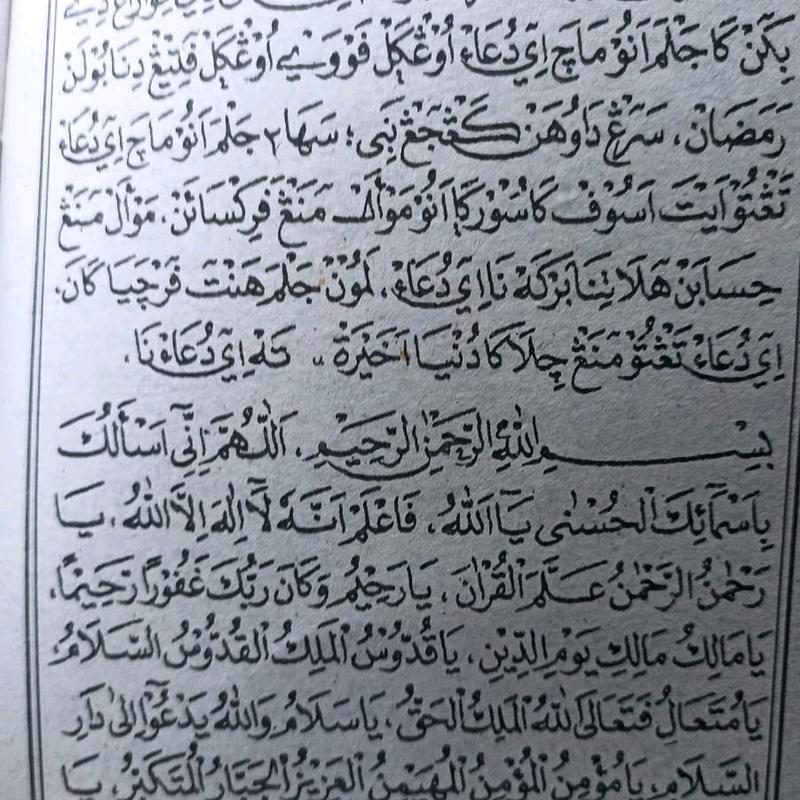 بَكَنْ كَا جَلْمَ اَنُوْ مَاچَ اِيْ دُعَاءْ اُوْڠْكَلْ فُوْوٓيْ اُوْڠْكَلْ فَتِيْڠْ دِنَا بُولَنْ
رَمَضَانْ، سَرَڠْ دَاوُهَنْ كَڠْجَڠْ نَبِي؛ سَهَا٢ جَلْمَ اَنُوْ مَاچَ اِيْ دُعَاءْ
تَڠْتُوْ اَيْتَ اَسُوْفْ كَا سُوْرْكَا اَنُوْ مَوْاَلْ مَنَڠْ فَرِكْسَائَنْ، مَوْاَلْ مَنَڠْ
حِسَابَنْ هَلَا تِنَا بَرْكَهْ نَا اِيْ دُعَاءْ، لَمُوْنْ جَلْمَ هَنْتَ فَرْچَيَا كَانَ
اِيْ دُعَاءْ تَڠْتُوْ مَنَڠْ چِلَاكَا دُنْيَا اَخِيْرَةْ .. تَهْ اِيْ دُعَاءْ نَا.
بِسْمِ اللهِ الرَّحْمٰنِ الرَّحِيْمِ، اَللّٰهُمَّ اِنِّيْ اَسْأَلُكَ
بِاَسْمَآئِكَ الْحُسْنٰى يَا اَللهُ، فَاعْلَمْ اَنَّهُ لَآ اِلٰهَ اِلَّا اللهُ، يَا
رَحْمٰنُ الرَّحْمٰنُ عَلَّمَ الْقُرْاٰنَ، يَا رَحِيْمُ وَكَانَ رَبُّكَ غَفُوْرًا رَحِيْمًا،
يَا مَالِكُ مَالِكِ يَوْمِ الدِّيْنِ، يَا قُدُّوْسُ الْمَلِكُ الْقُدُّوْسُ السَّلَامُ
يَا مُتَعَالِ فَتَعَالَى اللهُ الْمَلِكُ الْحَقُّ، يَا سَلَامُ وَاللهُ يَدْعُوْٓا اِلٰى دَارِ
السَّلَامِ، يَا مُؤْمِنُ الْمُؤْمِنُ الْمُهَيْمِنُ الْعَزِيْزُ الْجَبَّارُ الْمُتَكَبِّرُ، يَا